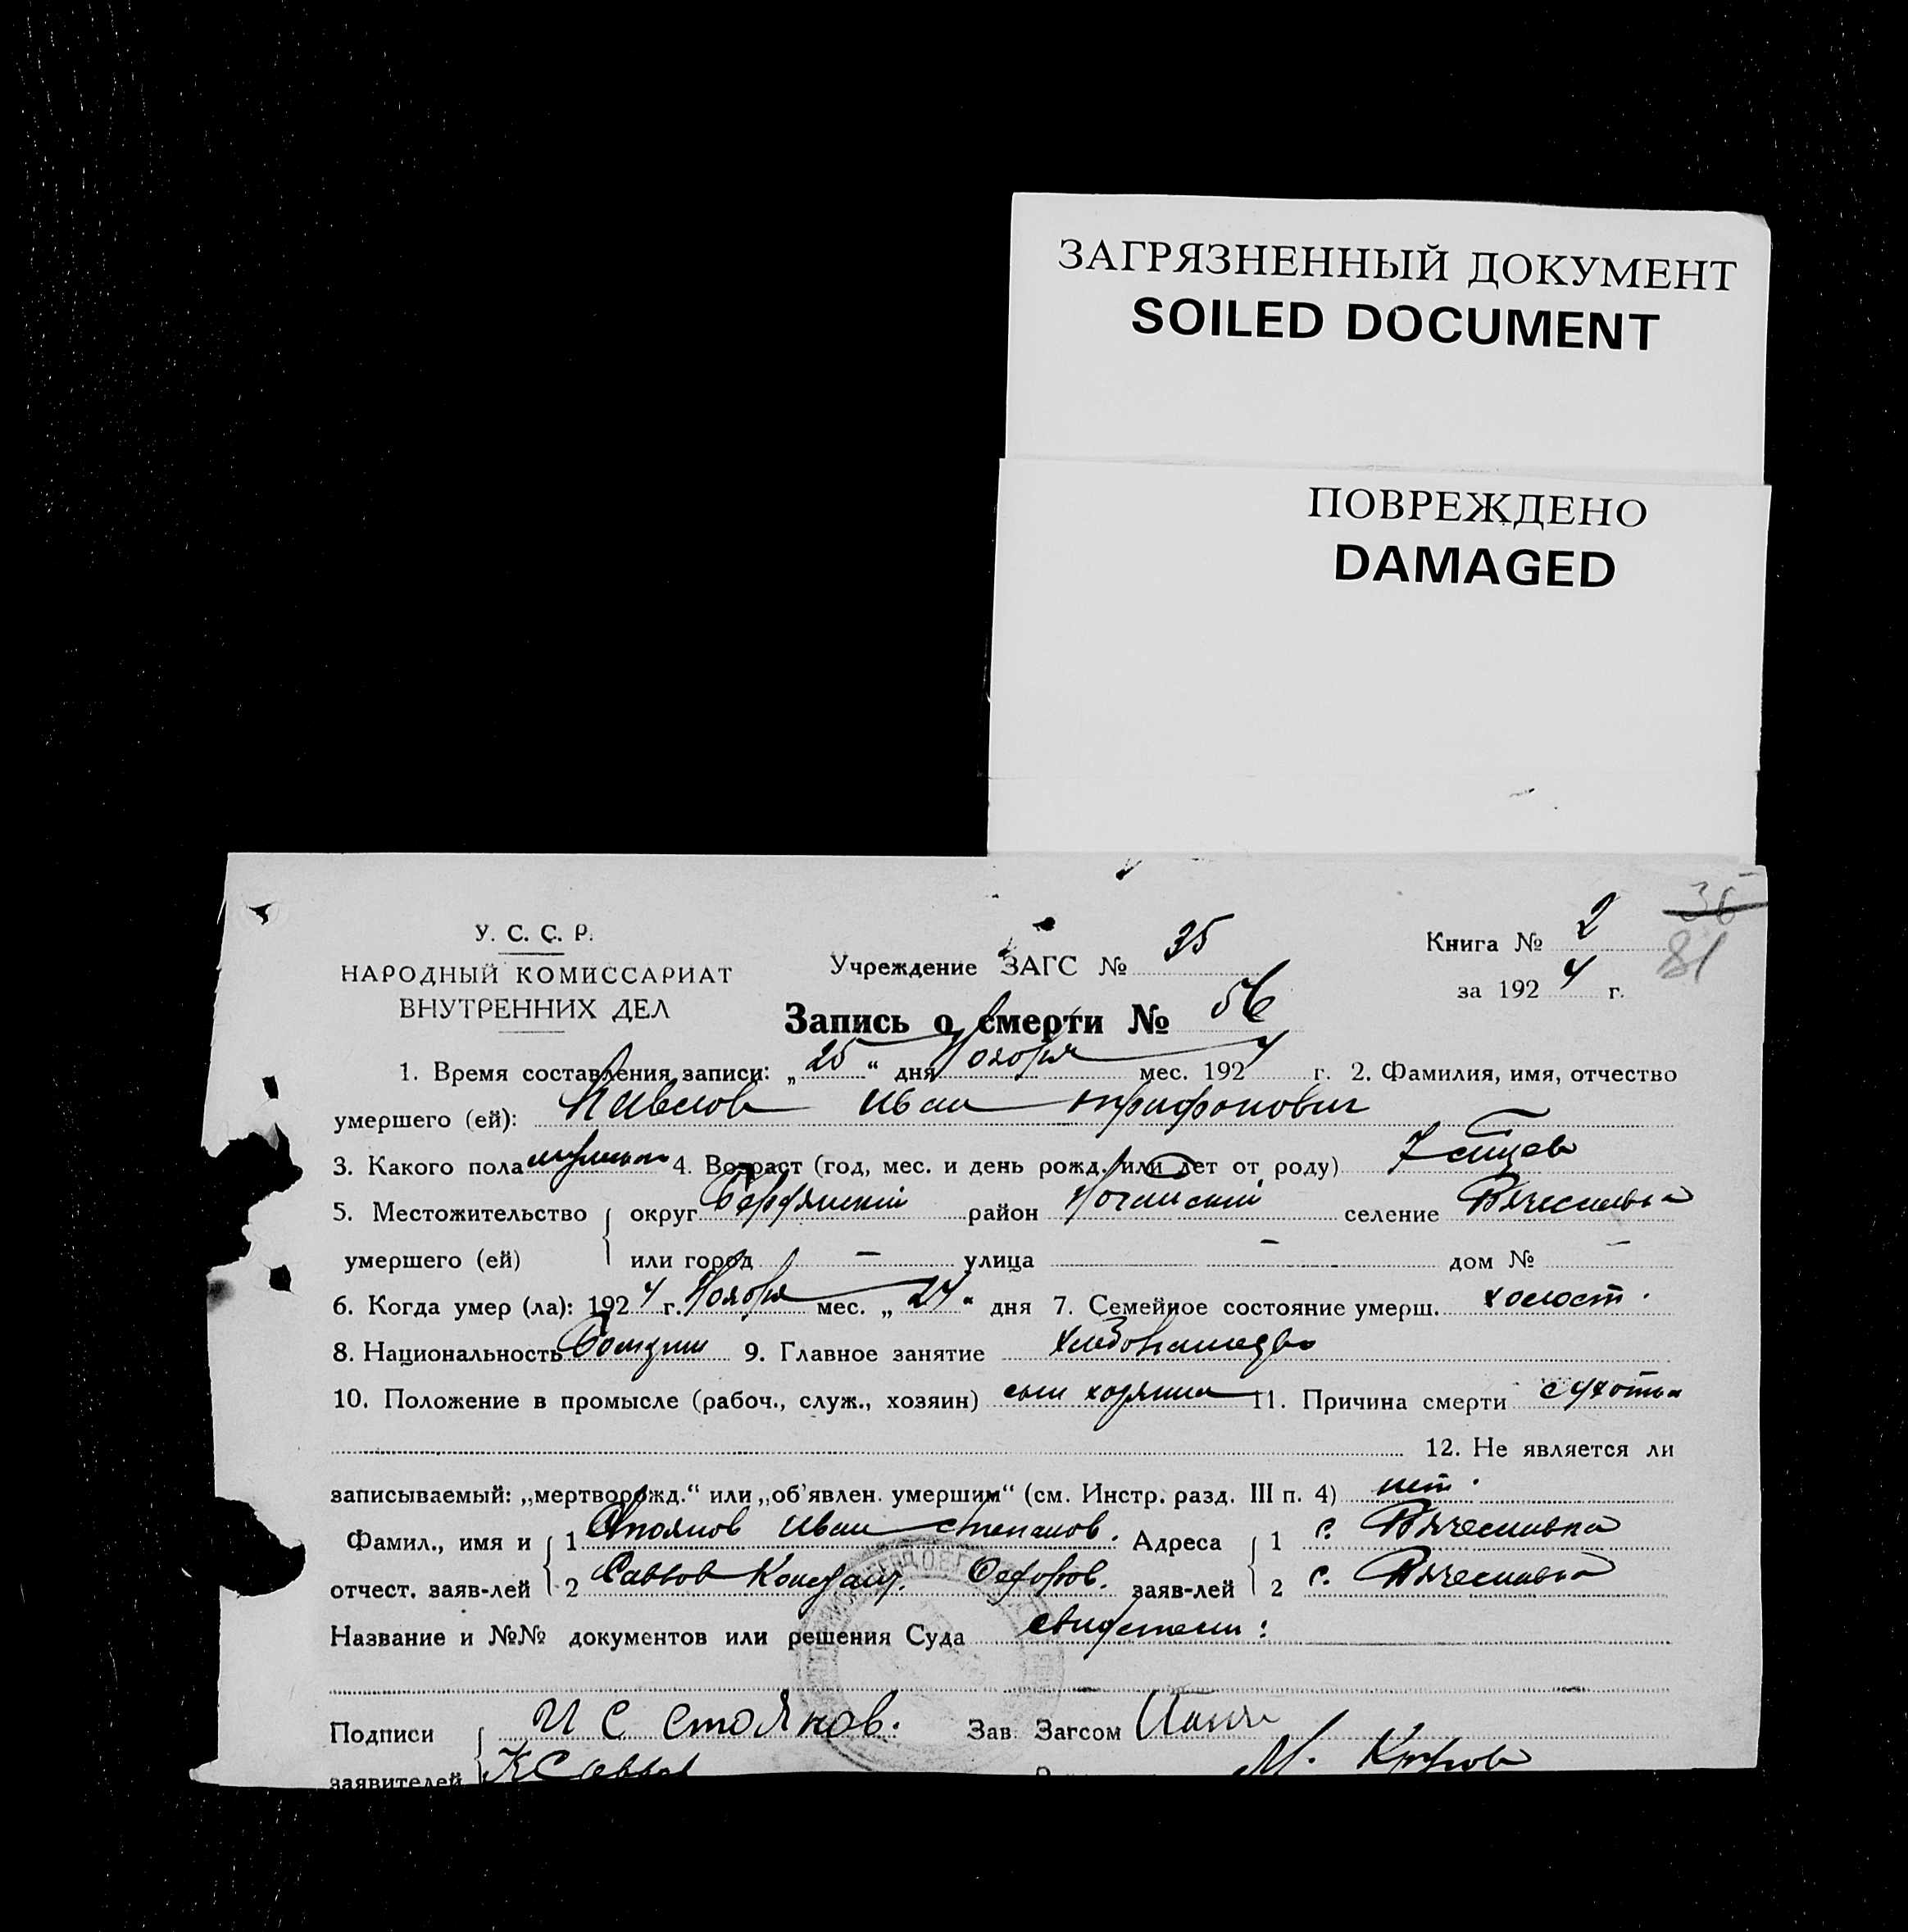 ЗАГРЯЗНЕННЫЙ ДОКУМЕНТ
SOILED DOCUMENT
ПОВРЕЖДЕНО
DAMAGED
36
81
У. С. С. Р.
НАРОДНЫЙ КОМИССАРИАТ
ВНУТРЕННИХ ДЕЛ
Учреждение ЗАГС № 35
Книга № 2
за 1924 г.
Запись о смерти № 56
1. Время составления записи: „25“ дня Ноября мес. 1924 г. 2. Фамилия, имя, отчество
умершего (ей): Павлов Иван Трифонович
3. Какого пола 4. Возраст (год, мес. и день рожд. или лет от роду) 7
5. Местожительство округ Бердянский район Ногайский селение Вячеславка
умершего (ей) или город — улица — дом № —
6. Когда умер (ла): 1924 г. Ноября мес. „24“ дня 7. Семейное состояние умерш. холост.
8. Национальность 9. Главное занятие хлебопашество
10. Положение в промысле (рабоч., служ., хозяин) сын хозяина 11. Причина смерти сухотка
12. Не является ли
записываемый: „мертворожд.“ или „об'явлен. умершим“ (см. Инстр. разд. III п. 4) нет.
Фамил., имя и 1 Стоянов Иван Степанов. Адреса 1 с. Вячеславка
отчест. заяв-лей 2 Саввов Федоров. заяв-лей 2 с. Вячеславка
Название и №№ документов или решения Суда свидетели:
Подписи И С Стоянов. Зав. Загсом
заявителей К Саввов М.